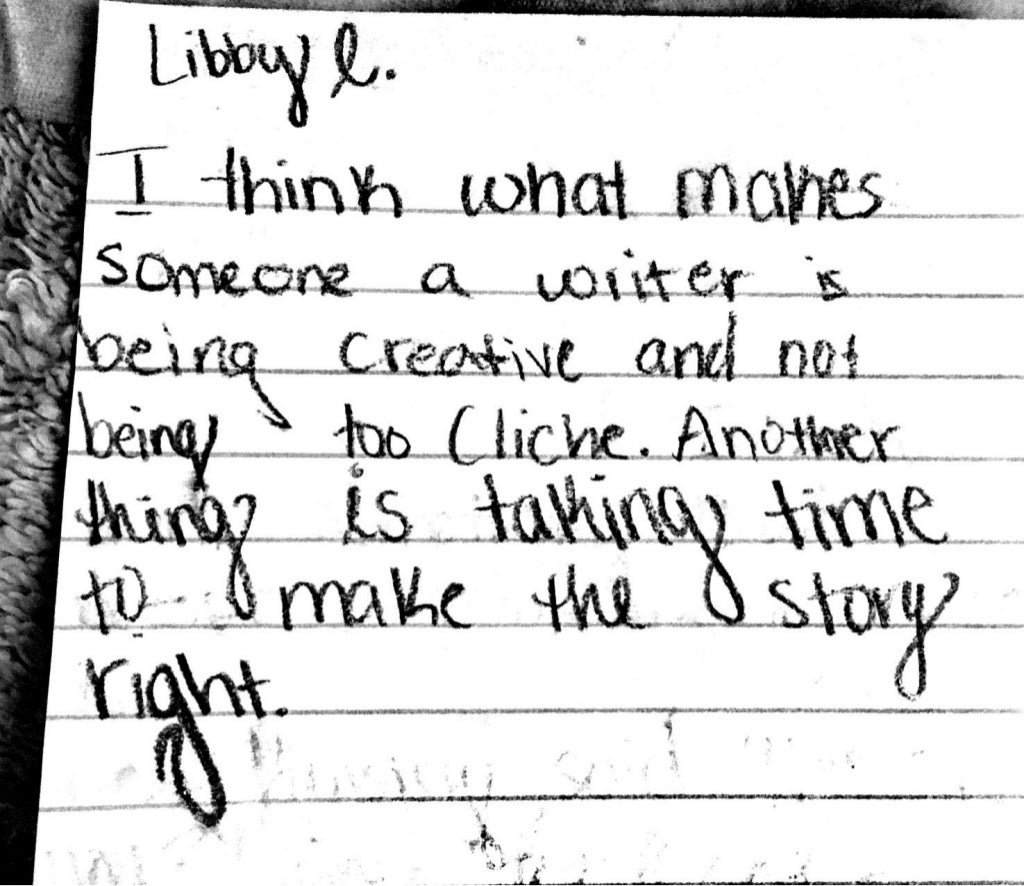 Libby l.
I think what makes
someone a writer is
being creative and not
being too Cliche. Another
thing is taking time
to make the story
right.